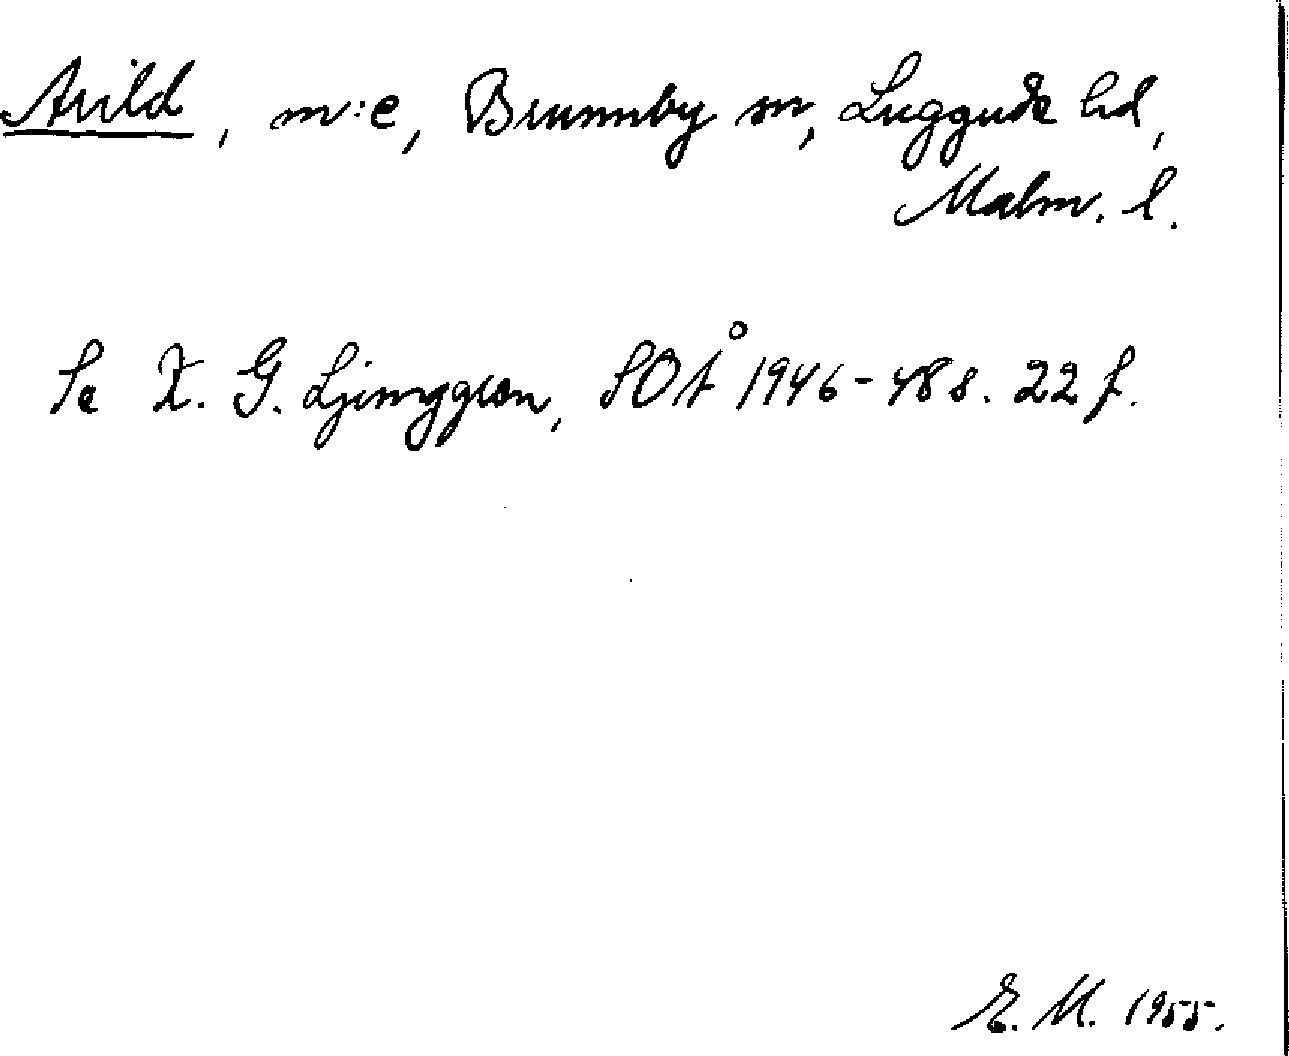 Arild, m:e, Brunnby sn, Luggude hd,
Malm. l.
Se K. G. Ljunggren, SOÅ 1946-48 s. 22 f.
E. M. 1955.